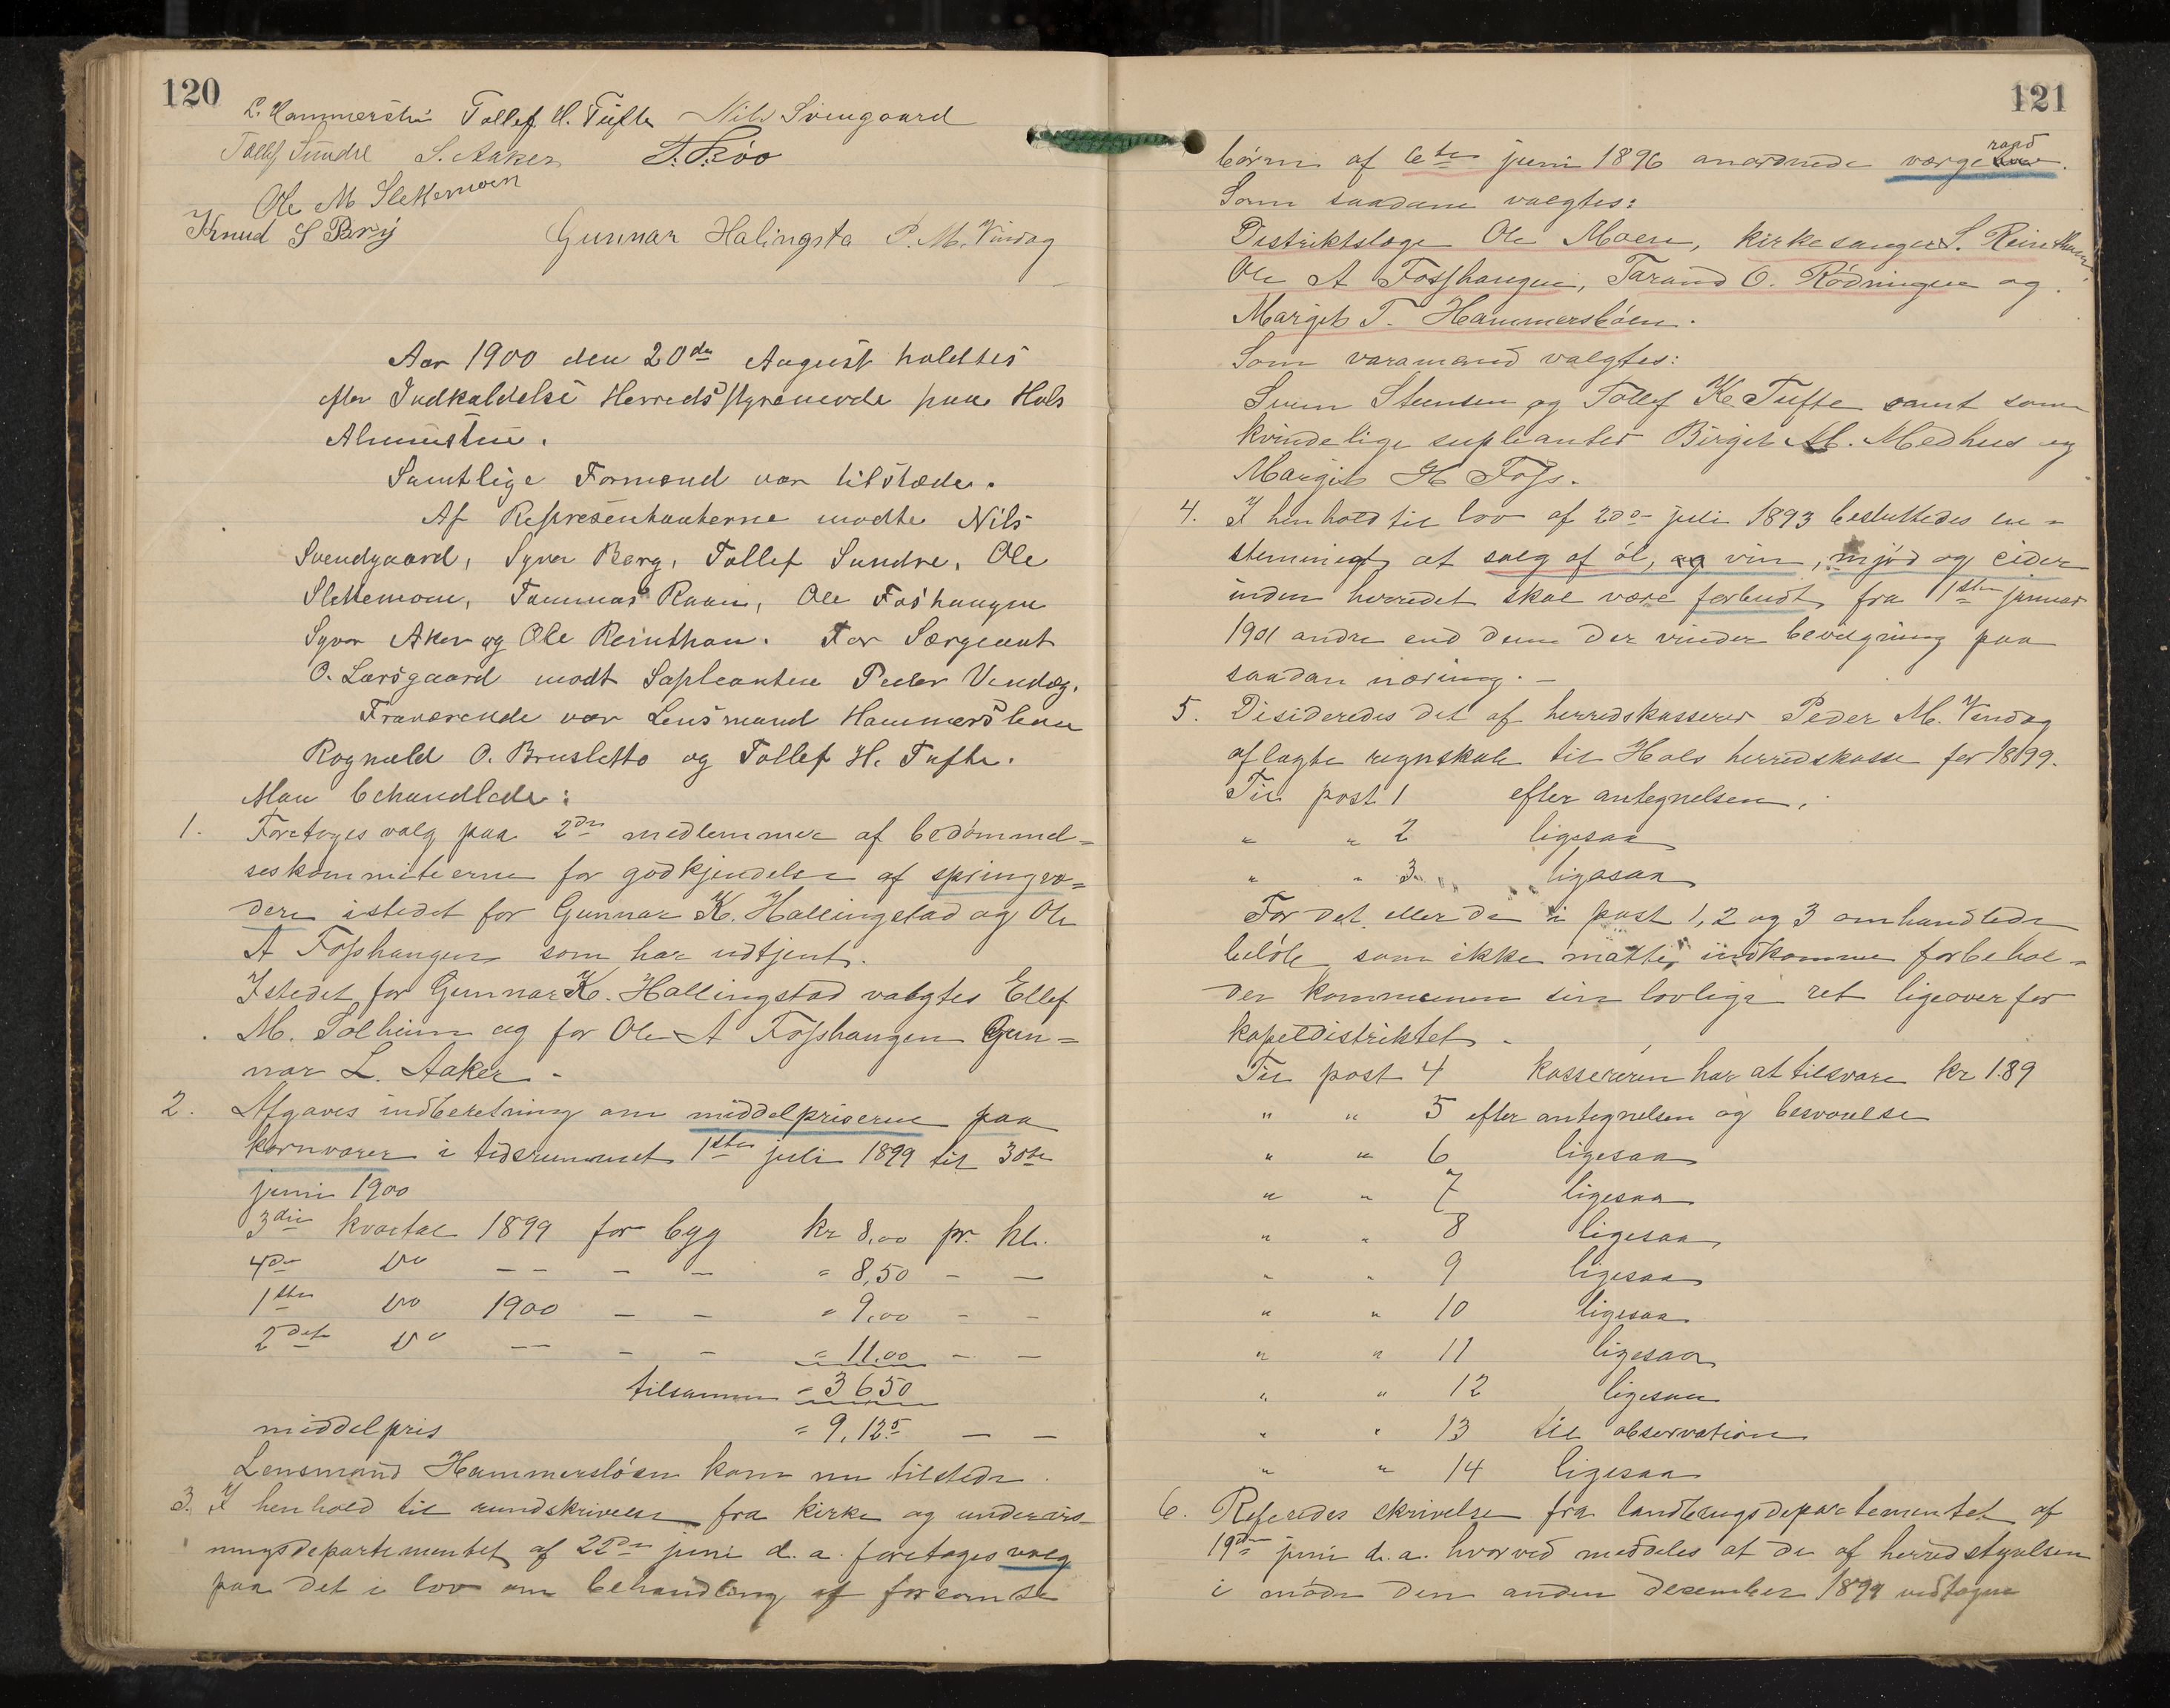 120
L. Hammersbøn Tollef H. Tufte Nils Svengaard
Tollef Sundre S. Aaker T. Skoo
Ole M Slettemoen
Knud S Bry Gunnar Halingsta P. M. Vindag
Aar 1900 den 20de August holdtes
efter Indkaldelse Herredsstyremøde paa Hols
Almenstue.
Samtlige Formænd var tilstæde.
Af Repræsentanterne mødte Nils
Svendgaard, Syver Berg, Tollef Sundre, Ole
Slettemoen, Tommas Raaen, Ole Foshaugen
Syver Aker og Ole Reinthon. For Særgeant
O. Larsgaard mødt Supleanten Peder Vendag.
Fraværende var Lensmand Hammersbøen
Rognald O. Brusletto og Tollef H. Tufte.
Man behandlede:
1. Foretoges valg paa 2de medlemmer af bedømmel=
seskommiteerne for godkjendelse af springvæ=
dere istedet for Gunnar K. Hallingstad og Ole
A Fosshaugen som har udtjent.
Istedet for Gunnar K. Hallingstad valgtes Ellef
M. Solheim og for Ole A Fosshaugen Gun=
nar L. Aaker -
2. Afgaves indberetning om middelpriserne paa
kornvarer i tidsrummet 1ste juli 1899 til 30te
juni 1900
3die kvartal 1899 for byg kr 8,00 pr. hl.
4de do — — — — " 8,50 — —
1ste do 1900 — — " 9,00 — —
2det do — — — " 11.00 — —
tilsammen " 3650
middelpris " 9,125 — —
Lensmand Hammersbøen kom nu tilstede.
3. I henhold til rundskrivelse fra kirke og undervis-
ningsdepartementet af 22de juni d. a. foretoges valg
paa det i lov om behandling af forsømte
121
børn af 6te juni 1896 anordnede værgeraad.
Som saadanne valgtes:
Distriktslæge Ole Moen, kirkesanger S. Reinthon,
Ole A Fosshaugen, Tarand O. Rødningen og
Margit T. Hammersbøen.
Som varamænd valgtes:
Svein Steensen og Tollef K. Tufte samt som
kvindelige supleanter Birgit M. Medhus og
Margit H Foss.
4. I henhold til lov af 20de juli 1893 besluttedes en-
stemmigt at salg af øl, og vin, mjød og cider
inden herredet skal være forbudt fra 1ste januar
1901 andre end dem der vinder bevilgning paa
saadan næring. —
5. Desideredes det af herredskasserer Peder M. Vendag
aflagte regnskab til Hols herredskasse for 1899.
Til post 1 efter antegnelsen.
" " 2 ligesaa
" " 3 ligesaa
For det eller de i post 1, 2 og 3 omhandlede
beløb som ikke maatte indkomme forbehol-
der kommunen sin lovlige ret ligeoverfor
kapeldistriktet.
Til post 4 kassereren har at tilsvare kr 1.89
" " 5 efter antegnelsen og besvarelse
" " 6 ligesaa
" " 7 ligesaa
" " 8 ligesaa
" " 9 ligesaa
" " 10 ligesaa
" " 11 ligesaa
" " 12 ligesaa
" " 13 til observation
" " 14 ligesaa
6. Refereredes skrivelse fra landbrugsdepartementet af
19de juni d. a. hvorved meddeles at de af herredstyrelsen
i møde den anden desember 1899 vedtagne